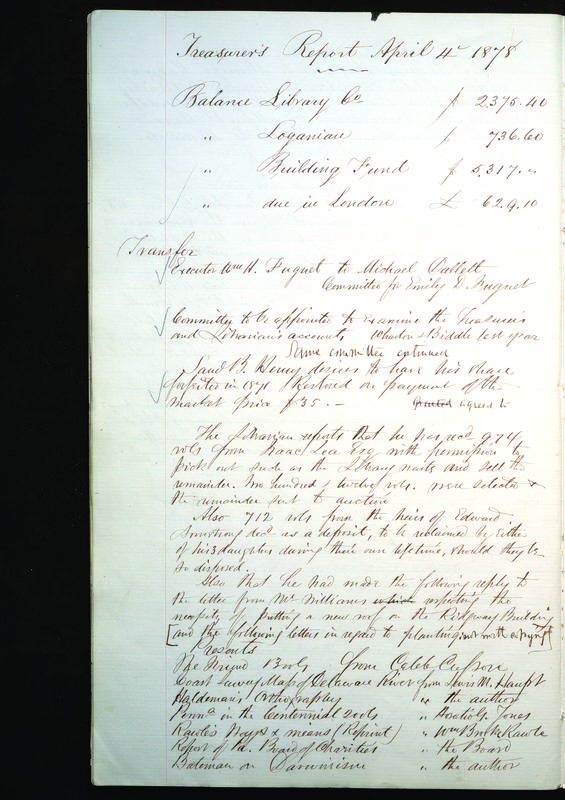 Treasurer's Report April 4 1878
Balance Library Co $ 2375.40
" Loganian $ 736.60
" Building Fund $ 5,317.-
" due in London £ 62.9.10
Transfer
Executor Wm H. Fuguet to Michael Dallett
Committee for Emily D. Fuguet
Committee to be appointed to examine the Treasurers
and Librarian's accounts Wharton & Biddle last year
Same committee continued
Saml B. Henry desires to have his share
forfeited in 1871 restored on payment of the
market price $35.- granted agreed to
The Librarian reports that he has recd 974
vols from Isaac Lea Esq with permission to
pick out such as the Library wants and sell the
remainder. Two hundred & twelve vols. were selected &
the remainder sent to auction
Also 712 vols from the heirs of Edward
Armstrong decd as a deposit, to be reclaimed by either
of his 3 daughters during their own lifetime, should they be
so disposed.
Also that he had made the following reply to
the letter from Mr Williams which respecting the
necessity of putting a new roof on the Ridgway Building
[and the following letters in regard to planting
Presents
The Friend Books from Caleb Cresson
Coast Survey Maps of Delaware River from Lewis M. Haupt
Haldeman's Orthography " the author
Penna in the Centennial 2 vols " Horatio G. Jones
Rawle's Ways & means (Reprint) " Wm Brooke Rawle
Report of the Board of Charities " the Board
Bateman on Darwinism " the author